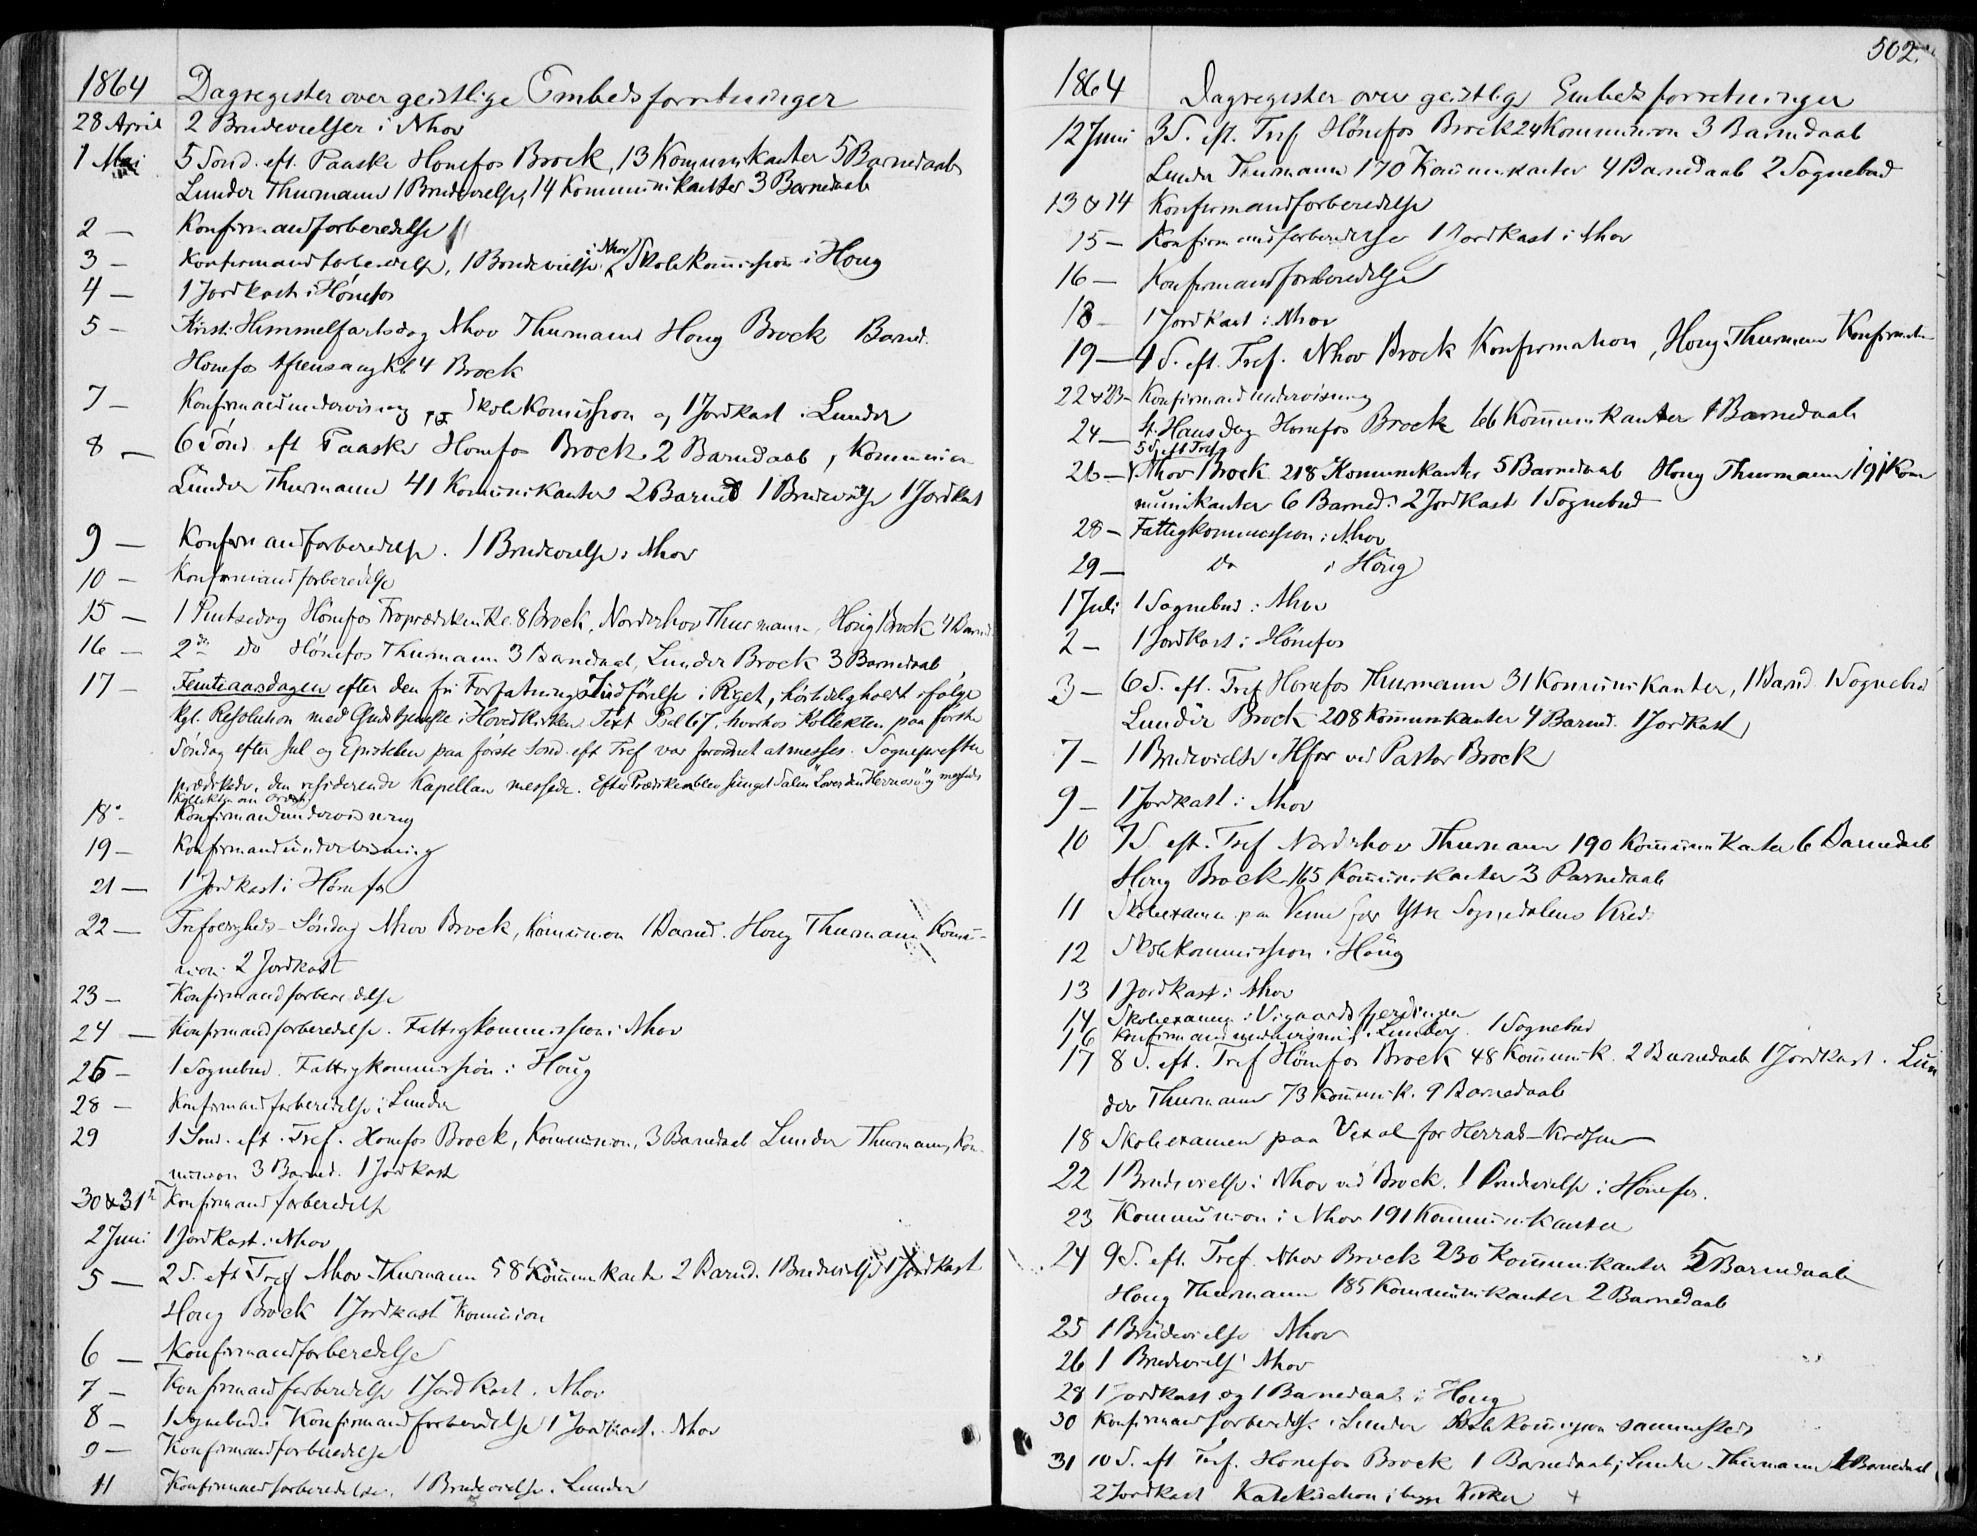 1864 Dagregister over geistlige Embedsforretninger
28 April 2 Brudevielser i Nhov
1 Mai 5 Sønd. eft. Paaske Hønefos Brock, 13 Kommunikanter 5 Barnedaab
Lunder Thurmann 1 Brudevielse, 14 Kommunikanter 3 Barnedaab
2 — Konfirmandforberedelse
3 — Konfirmandforberedelse, 1 Brudevielse i Nhov Skolekommission i Houg
4 — 1 Jordkast i Hønefos
5 — Kristi Himmelfartsdag Nhov Thurmann Houg Brock Barned.
Hønefos Aftensang Kl 4 Brock
7 — Konfirmandundervisning Skolekommission og 1 Jordkast i Lunder
8 — 6 Sønd. eft Paaske Hønefos Brock 2 Barnedaab, Kommunion
Lunder Thurmann 41 Kommunikanter 2 Barned 1 Brudevielse 1 Jordkast
9 — Konfirmandforberedelse. 1 Brudevielse i Nhov
10 — Konfirmandforberedelse
15 — 1 Pintsedag Hønefos Froprædiken Kl. 8 Brock, Norderhov Thurmann, Houg Brock 4 Barned
16 — 2den Do Hønefos Thurmann 3 Barnedaab, Lunder Brock 3 Barnedaab
17 — Femtiaarsdagen efter den fri Forfatnings Indførelse i Riget, høitideligholdt ifølge
kgl. Resolution med Gudstjeneste i Hovedkirken Text Psal 67, hvorhos Kollekten paa første
Søndag efter Jul og Epistelen paa første Sønd. eft Tref var forordnet at messes. Sognepresten
prædikede, den residerende Kapellan messede. Efter Prædikenblev sunget Salm "Lover den Herre" og messedes
Kollekten om Ordet
18 - Konfirmandundervisning
19 — Konfirmandundervisning
21 — 1 Jordkast i Hønefos
22 — Trefoldigheds-Søndag Nhov Brock, Kommunion 1 Barned. Houg Thurmann Kommu-
nion 2 Jordkast
23 — Konfirmandforberedelse
24 — Konfirmandforberedelse. Fattigkommission i Nhov
25 — 1 Sognebud. Fattigkommission i Houg
28 — Konfirmandforberedelse i Lunder
29 1 Sønd. eft. Tref. Hønefos Brock, Kommunion, 3 Barnedaab Lunder Thurmann, Kom-
munion 3 Barned. 1 Jordkast
30 & 31te Konfirmandforberedelse
2 Juni 1 Jordkast i Nhov
5 — 2 S. eft Tref Nhov Thurmann 58 Kommunikanter 2 Barned. 1 Brudevielse 1 Jordkast
Houg Brock 1 Jordkast Kommunion
6 — Konfirmandforberedelse
7 — Konfirmandforberedelse 1 Jordkast i Nhov
8 — 1 Sognebud. Konfirmandforberedelse 1 Jordkast i Nhov
9 — Konfirmandforberedelse
11 Konfirmandforberedelse. 1 Brudevielse i Lunder
502
1864 Dagregister over geistlige Embedsforretninger
12 Juni 3 S. eft. Tref Hønefos Brock 24 Kommunion 3 Barnedaab
Lunder Thurmann 170 Kommunikanter 4 Barnedaab 2 Sognebud
13 & 14 Konfirmandforberedelse
15 — Konfirmandforberedelse 1 Jordkast i Nhov
16 — Konfirmandforberedelse
18 — 1 Jordkast i Nhov
19 — 4 S. eft. Tref. Nhov Brock Konfirmation, Houg Thurmann Konfirmation
22 & 23 — Konfirmandundervisning
24 — St. Hansdag Hønefos Brock 66 Kommunikanter 1 Barnedaab
5 S. eft Tref
26 — Nhov Brock 218 Kommunikanter 5 Barnedaab Houg Thurmann 191 Kom
munikanter 6 Barned. 2 Jordkast 1 Sognebud
28 — Fattigkommission i Nhov
29 — Do i Houg
1 Juli 1 Sognebud i Nhov
2 — 1 Jordkast i Hønefos
3 — 6 S. eft. Tref Hønefos Thurmann 31 Kommunikanter, 1 Barnd. 1 Sognebud
Lunder Brock 208 Kommunikanter 4 Barned. 1 Jordkast
7 — 1 Brudevielse i Hfos ved Pastor Brock
9 — 1 Jordkast i Nhov
10 7 S. eft. Tref Norderhov Thurmann 190 Kommunikanter 6 Barnedaab
Houg Brock 165 Kommunikanter 3 Barnedaab
11 Skoleexamen paa Veme for Ytre Sognedalens Kreds
12 Skolekommission i Houg
13 1 Jordkast i Nhov
14 Skoleexamen i Vegaardsfjerdingen
16 Konfirmandundervisning i Lunder. 1 Sognebud
17 8 S. eft. Tref Hønefos Brock 48 Kommunik. 2 Barnedaab 1 Jordkast. Lun
der Thurmann 73 Kommunik. 9 Barnedaab
18 Skoleexamen paa Vexal for Herrads-Kredsen
22 1 Brudevielse i Nhov ved Brock. 1 Brudevielse i Hønefos.
23 Kommunion i Nhov 191 Kommunikanter
24 9 S. eft. Tref. Nhov Brock 230 Kommunikanter 5 Barnedaab
Houg Thurmann 185 Kommunikanter 2 Barnedaab
25 1 Brudevielse Nhov
26 1 Brudevielse i Nhov
28 1 Jordkast og 1 Barnedaab i Houg
30 Konfirmandforberedelse i Lunder Skolekommission sammesteds
31 10 S. eft Tref. Hønefos Brock 1 Barnedaab, Lunder Thurmann 1 Barnedaab
2 Jordkast Katekisation i begge Kirker